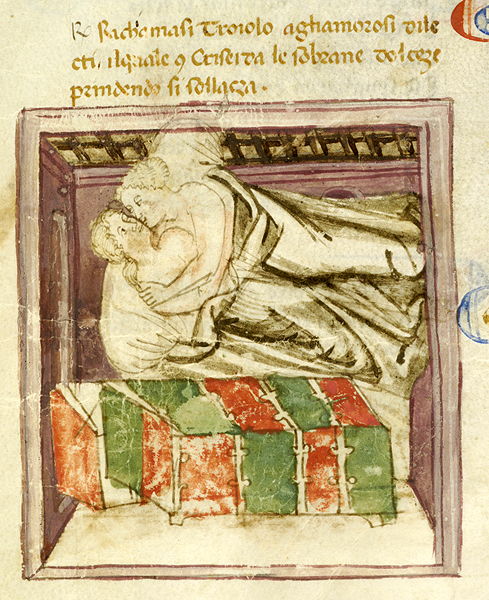 Rachomasi Troiolo agliamorosi dile
cti. ilquale 9 Criseida le sobrane dolceze
prindendo si sollacza.